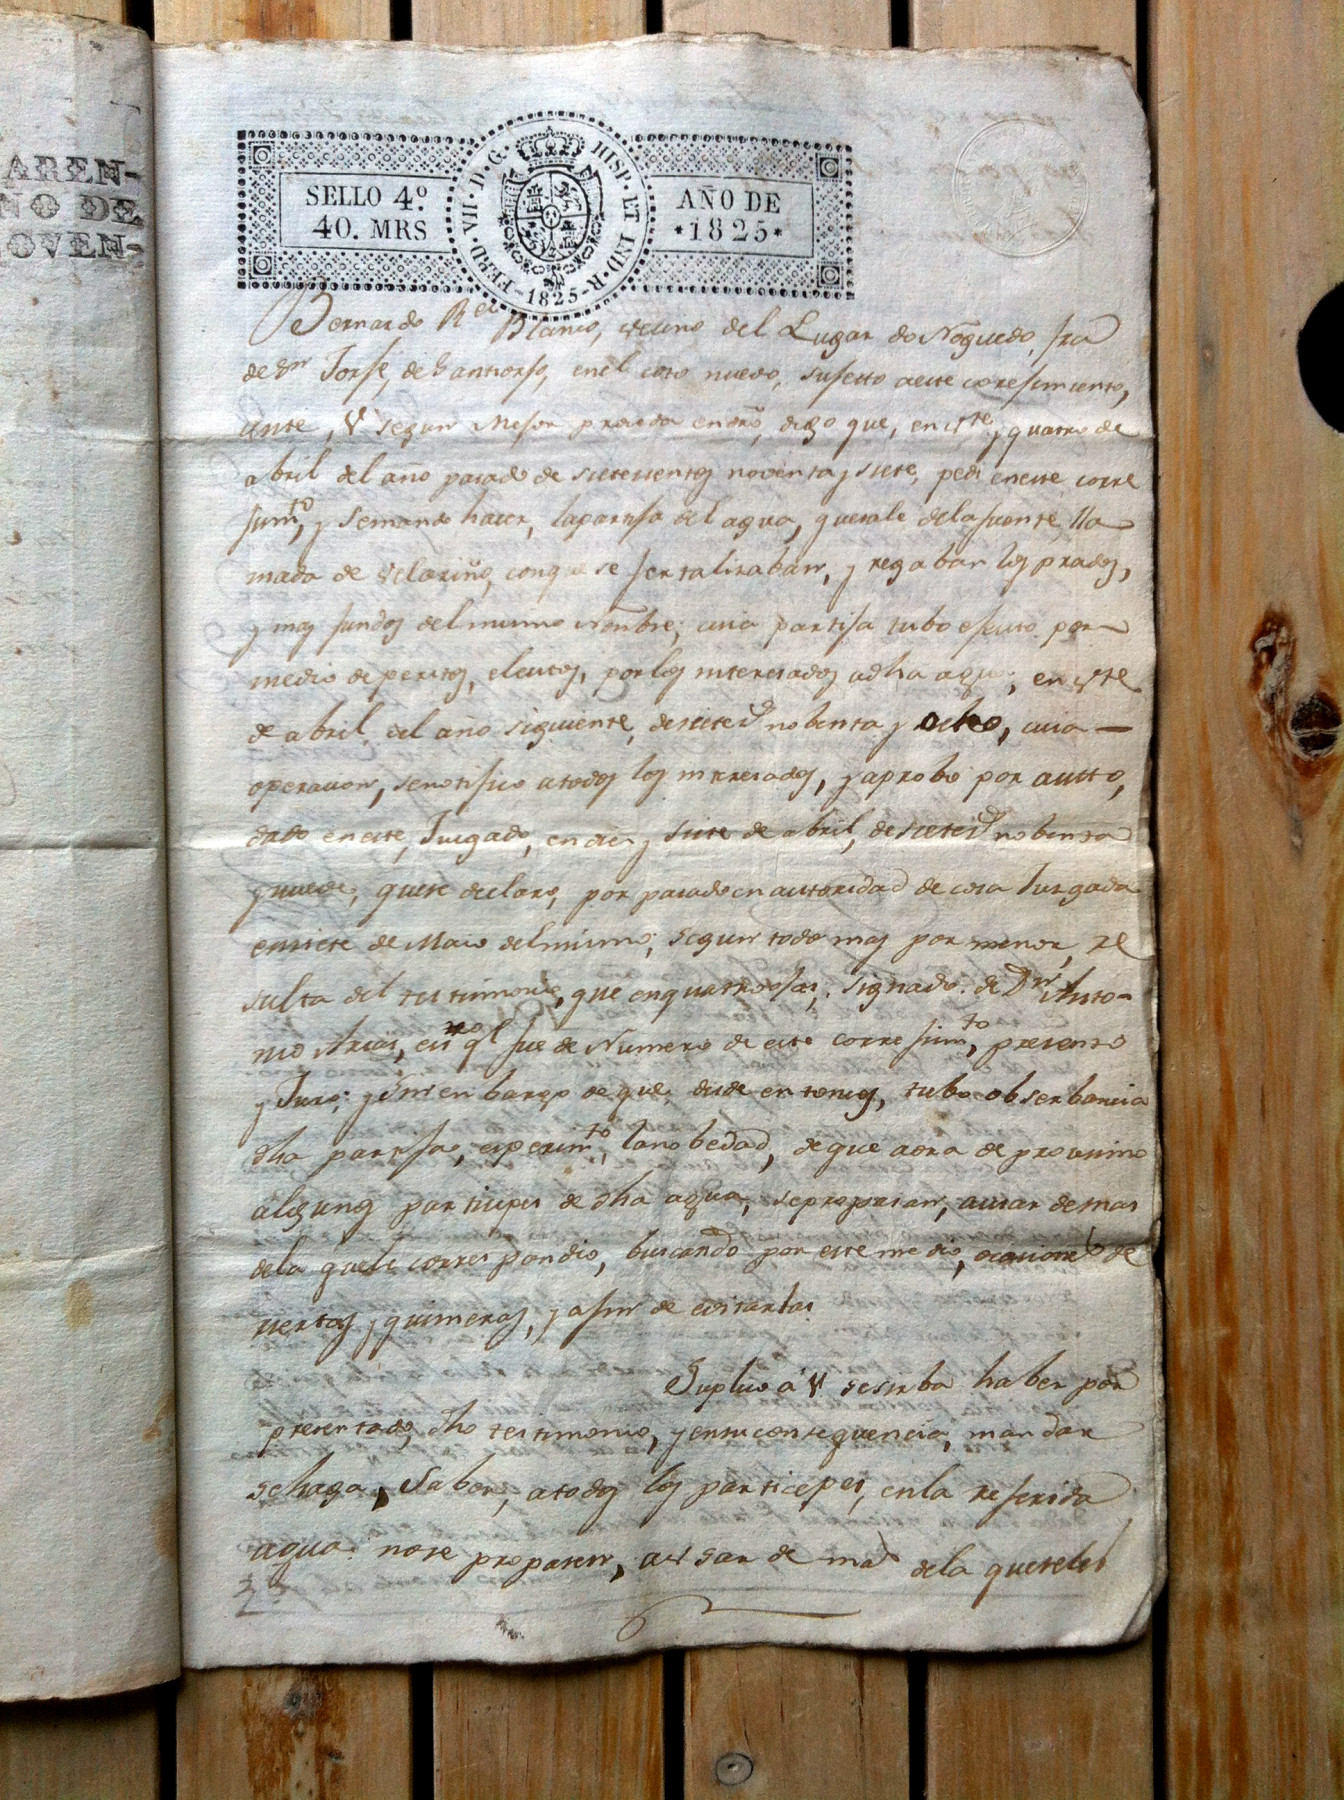 AREN-
ÑO DE
OVEN-
SELLO 4.º
40. MRS
FERD. VII. D. G. HISP. ET IND. R.
1825
AÑO DE
*1825*
Bernardo Rel Blanco, vecino del Lugar do Noguedo, fra
de Sn Jorje, de Santiorjo, enel coto nuevo, sujetto aeste corejimiento,
Ante, V segun Mejor proceda endro, digo que, en ste, y quatro de
abril del año pasado de setecientos noventa y siete, pedi eneste corre
jimto, y semando hacer, lapartija del agua, quesale delafuente lla
mada de Velariño, conque se fertalizaban, y regaban los prados,
y mas fundos del mismo Nombre; cuia partija tubo efecto por
medio de peritos, electos, por los interesados adha agua; en
de abril del año siguiente, desietecs nobenta y ocho, cuia
operacion, senotifico atodos los interesados, y aprobó por autto,
dado eneste, Juzgado, en diez y siete de abril, desietecs nobenta
y nueve, quese declaro, por pasado en autoridad de cosa Juzgada
ensiete de Maio delmismo; segun todo mas por menor, re
sulta del testimonio, que enquatro ojas, signado de Dn Anto-
nio Arias, esno ql fue de Numero de este correjimto, presento
y Juro; y sin enbargo de que, desde entonces, tubo obserbancia
dha partija, esperimto, lanobedad, de que aora de proximo
algunos participes de dha agua, sepropasan, a usar demas
dela quele correspondio, buscando por este medio, ocasiones de
reiertas y quimeras, y afin de evitarlas
Suplico á V sesirba haber por
presentado, dho testimonio, y ensuconsequencia, mandar
sehaga, Saber, atodos los participes, enla referida
agua nose propasen, a usar de mas dela queseles